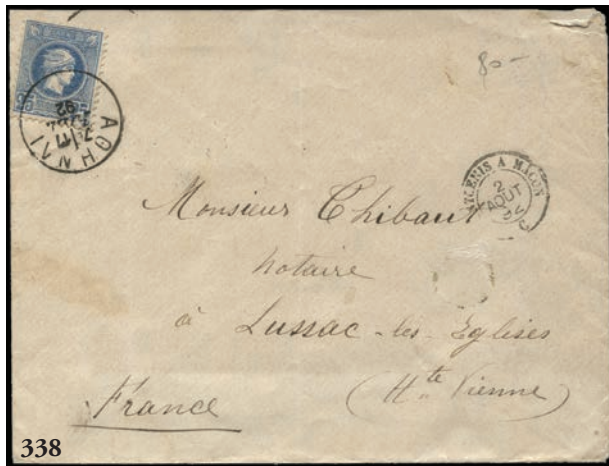 25
ΑΘΗΝΑΙ
17
92
80 -
A MACON
2
AOUT
92
Monsieur Chibaut
notaire
à Lussac-les-Eglises
(Hte Vienne)
France
338